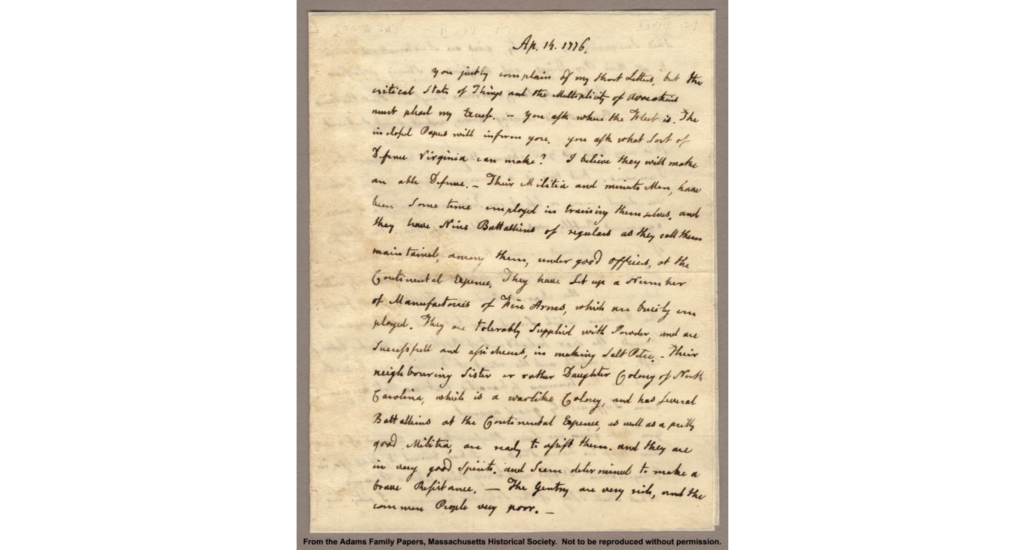 Ap. 14. 1776.
You justly complain of my short Letters, but the
critical State of Things and the Multiplicity of Avocations
must plead my Excuse. — You ask where the Fleet is. The
inclosed Papers will inform you. You ask what Sort of
Defence Virginia can make? I believe they will make
an able Defence. — Their Militia and minute Men, have
been some time employed in training themselves, and
they have Nine Battallions of regulars as they call them
maintained, among them, under good Officers, at the
Continental Expence. They have set up a Number
of Manufactories of Fire Arms, which are busily em
ployed. They are tolerably supplied with Powder, and are
successfull and assiduous, in making Salt Petre. — Their
neighbouring Sister or rather Daughter Colony of North
Carolina, which is a warlike Colony, and has several
Battallions at the Continental Expence, as well as a pretty
good Militia, are ready to assist them. and they are
in very good Spirits, and seem determined to make a
brave Resistance. — The Gentry are very rich, and the
common People very poor. —
From the Adams Family Papers, Massachusetts Historical Society. Not to be reproduced without permission.